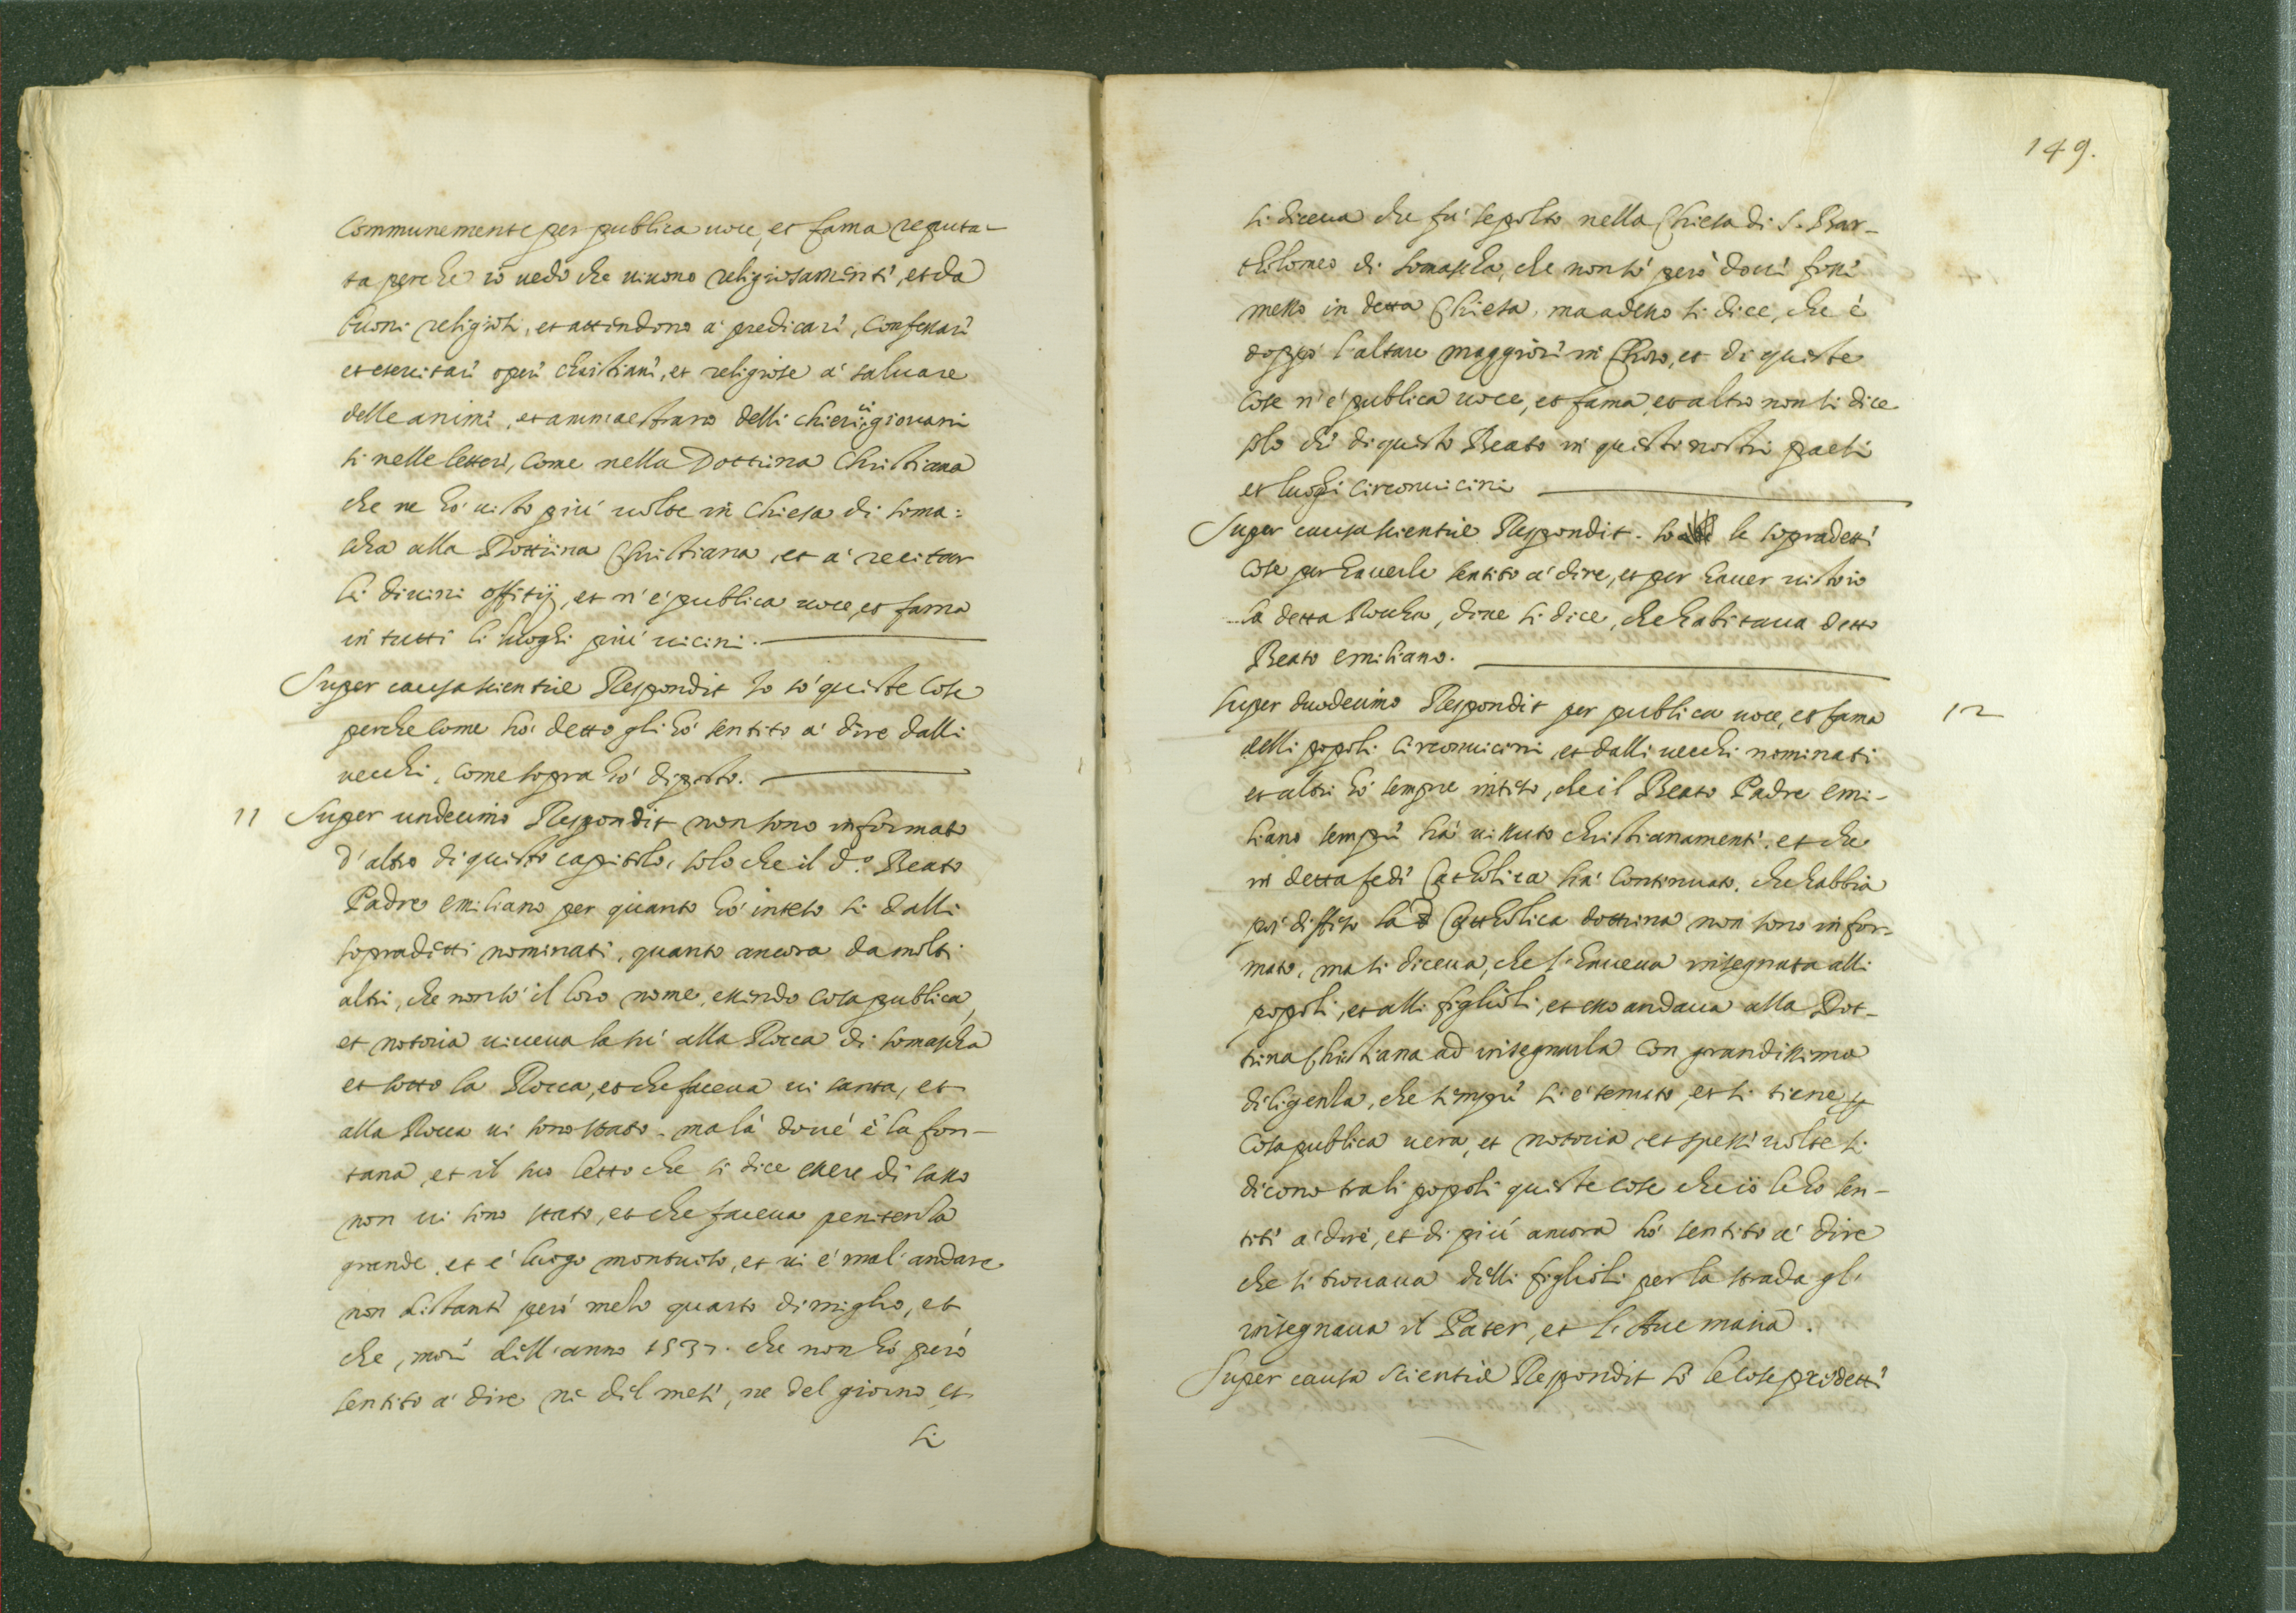 Communemente per publica uoce, et fama reputa-
ta perche io uedo che uiuono religiosamenti, et da
buoni religiosi, et attendono a' predicari, confessari
et esercitari operi christiani, et religiose a' saluare
delle animi, et ammaestrano delli chierici giouani
si nelle letteri, come nella Dottrina Christiana
che ne hò uisto più uolte in Chiesa di soma:
scha alla Dottrina Christiana, et a' recitar
li diuini offitij, et n'è publica uoce, et fama
in tutti li luoghi più uicini.
Super causa scientiæ Respondit Io sò queste cose
perche come hò detto gli hò sentito a' dire dalli
uecchi, come sopra hò diposto.
11 Super undecimo Respondit non sono informato
d'altro di questo capitolo, solo che il d.o Beato
Padre Emiliano per quanto hò inteso si dalli
sopradetti nominati, quanto ancora da molti
altri, che non sò il loro nome, essendo cosa publica,
et notoria uiueua la sù alla Rocca di somascha
et sotto la Rocca, et che faceua ui santa, et
alla Rocca ui sono stato. ma là doué è la fon-
tana, et il suo letto che si dice essere di sasso
non ui sono stato, et che faceua penitenza
grande, et è luogo montuoso, et ui è mal'andare
non distanti però mezo quarto di miglio, et
che, morì dell'anno 1537. che non hò però
sentito a' dire ne del mesi, ne del giorno, et
si
149.
si diceua che fù sepolto nella Chiesa di S. Bar-
tholomeo di somascha, che non sò però doui fossi
messo in detta Chiesa, ma adesso si dice, che è
doppò l'altare maggiori in Choro, et di queste
cose n'è publica uoce, et fama, et altro non si dice
solo chi di questo Beato in questi nostri paesi
et luoghi circonuicini
Super causa scientiæ Respondit. so le sopradetti
cose per hauerle sentito a' dire, et per hauer uisto io
la detta Roccha, doue si dice, che habitaua detto
Beato Emiliano.
Super duodecimo Respondit per publica uoce, et fama 12
delli popoli circonuicini, et dalli uecchi nominati
et altri hò sempre inteso, che il Beato Padre Emi-
liano sempri hà uissuto christianamenti, et che
in detta fedi Catholica hà continuato, che habbia
poi diffeso la Cattholica dottrina non sono infor-
mato, ma si diceua, che l'haueua insegnata alli
popoli, et alli figlioli, et esso andaua alla Dot-
trina Christiana ad insegnarla con grandissima
diligenza, che sempri si è tenuto, et si tiene p
cosa publica uera, et notoria, et spessi uolte si
dicono tra li popoli queste cose che io le ho sen-
titi a' dire, et di più ancora hò sentito a' dire
che si trouaua delli figlioli per la strada gl'
insegnaua il Pater, et l'Aue maria.
Super causa scientiæ Respondit sò le cose predetti